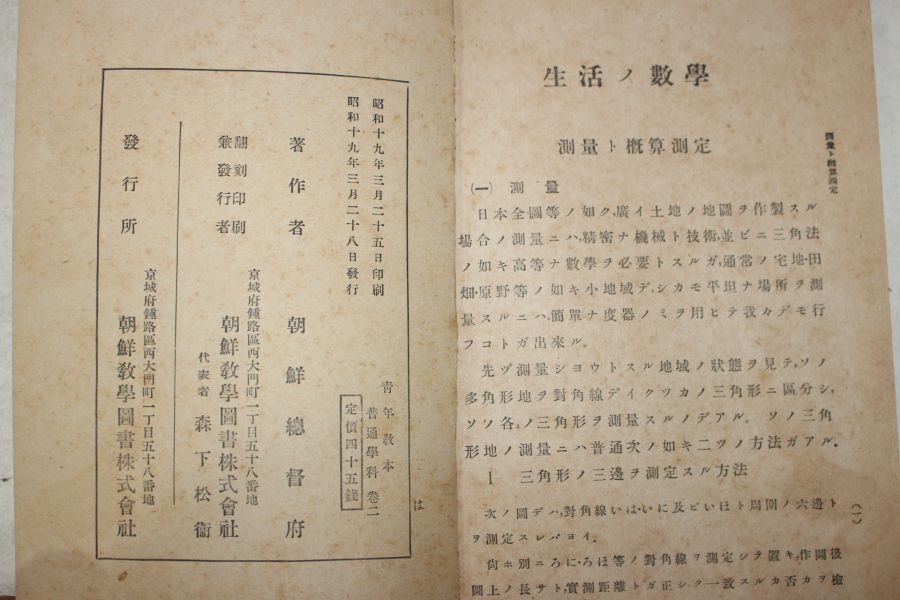 昭和十九年三月二十五日印刷
昭和十九年三月二十八日發行
著作者 朝鮮總督府
翻刻印刷
兼發行者
京城府鍾路區西大門町一丁目五十八番地
朝鮮教學圖書株式會社
代表者 森下松衞
發行所
京城府鍾路區西大門町一丁目五十八番地
朝鮮教學圖書株式會社
青年教本
普通學科 卷二
定價四十五錢
は
生活ノ數學
測量ト概算測定
測量ト概算測定
(一) 測量
日本全圖等ノ如ク,廣イ土地ノ地圖ヲ作製スル
場合ノ測量ニハ,精密ナ機械ト技術,並ビニ三角法
ノ如キ高等ナ數學ヲ必要トスルガ,通常ノ宅地·田
畑·原野等ノ如キ小地域デ,シカモ平坦ナ場所ヲ測
量スルニハ,簡單ナ度器ノミヲ用ヒテ我々デモ行
フコトガ出來ル。
先ヅ測量シヨウトスル地域ノ狀態ヲ見テ,ソノ
多角形地ヲ對角線デイクツカノ三角形ニ區分シ,
ソノ各〻ノ三角形ヲ測量スルノデアル。ソノ三角
形地ノ測量ニハ普通次ノ如キ二ツノ方法ガアル。
1 三角形ノ三邊ヲ測定スル方法
次ノ圖デハ,對角線いは·いに及ビいほト周圍ノ六邊ト
ヲ測定スレバヨイ.
尙ホ別ニろに·ろほ等ノ對角線ヲ測定シテ置キ,作圖後
圖上ノ長サト,實測距離トガ正シク一致スルカ否カヲ檢
(一)